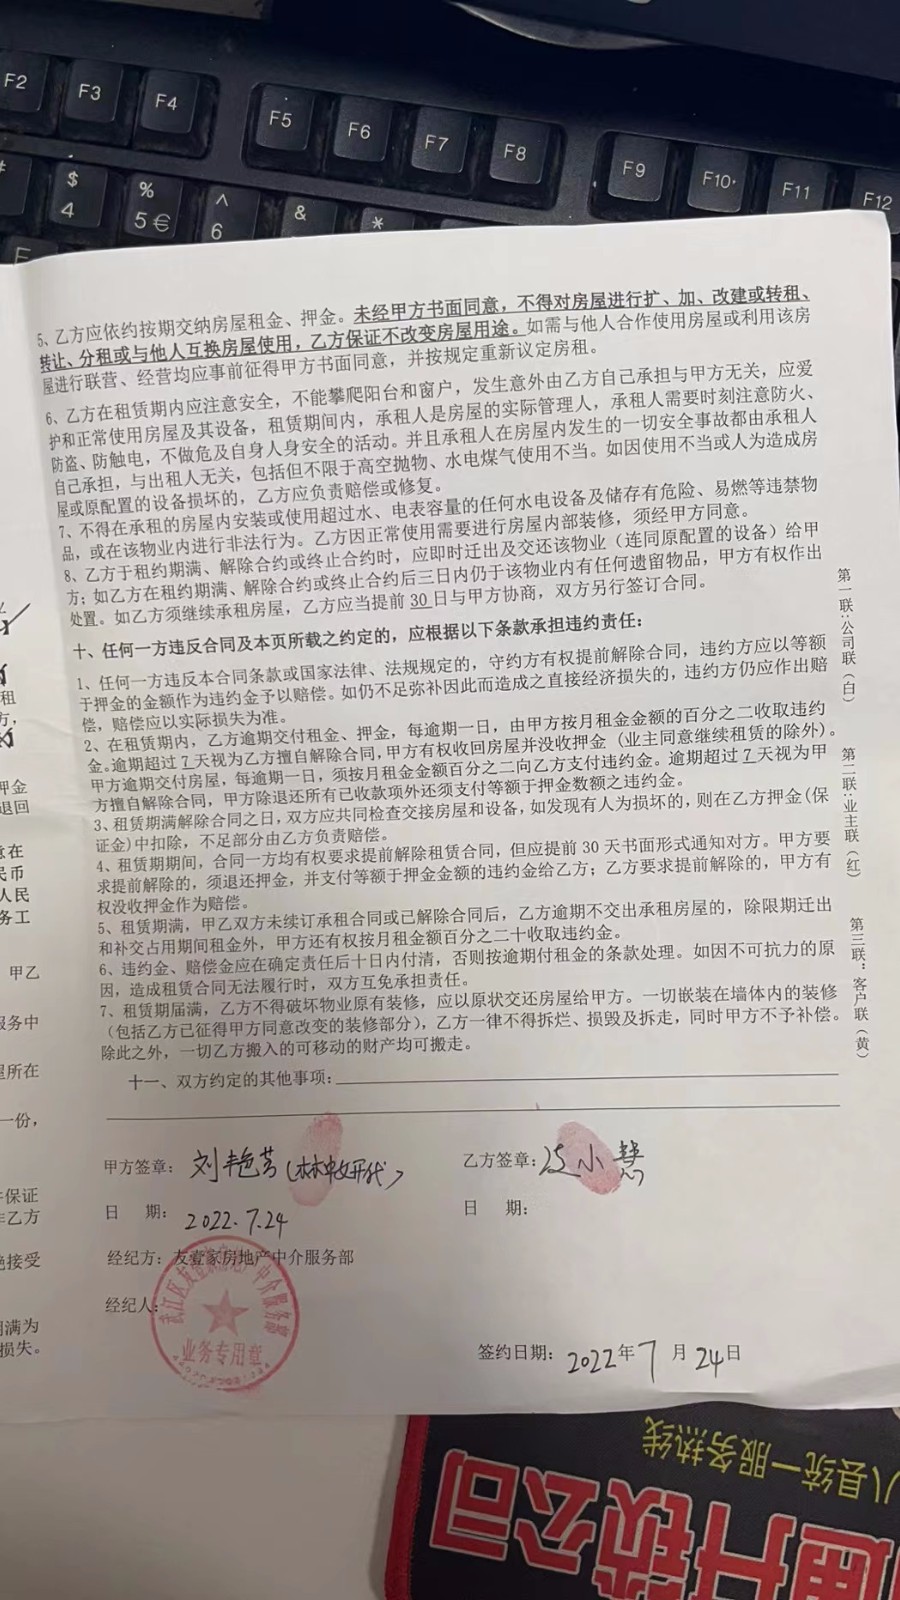 F2
F3
F4
F5
F6
F7
F8
F9
F10
F11
F12
$
4
%
5 €
^
6
&
*
5、乙方应依约按期交纳房屋租金、押金。未经甲方书面同意，不得对房屋进行扩、加、改建或转租、
转让、分租或与他人互换房屋使用，乙方保证不改变房屋用途。如需与他人合作使用房屋或利用该房
屋进行联营、经营均应事前征得甲方书面同意，并按规定重新议定房租。
6、乙方在租赁期内应注意安全，不能攀爬阳台和窗户，发生意外由乙方自己承担与甲方无关，应爱
护和正常使用房屋及其设备，租赁期间内，承租人是房屋的实际管理人，承租人需要时刻注意防火、
防盗、防触电，不做危及自身人身安全的活动。并且承租人在房屋内发生的一切安全事故都由承租人
自己承担，与出租人无关，包括但不限于高空抛物、水电煤气使用不当。如因使用不当或人为造成房
屋或原配置的设备损坏的，乙方应负责赔偿或修复。
7、不得在承租的房屋内安装或使用超过水、电表容量的任何水电设备及储存有危险、易燃等违禁物
品，或在该物业内进行非法行为。乙方因正常使用需要进行房屋内部装修，须经甲方同意。
8、乙方于租约期满、解除合约或终止合约时，应即时迁出及交还该物业（连同原配置的设备）给甲
方；如乙方在租约期满、解除合约或终止合约后三日内仍于该物业内有任何遗留物品，甲方有权作出
处置。如乙方须继续承租房屋，乙方应当提前30日与甲方协商，双方另行签订合同。
十、任何一方违反合同及本页所载之约定的，应根据以下条款承担违约责任：
1、任何一方违反本合同条款或国家法律、法规规定的，守约方有权提前解除合同，违约方应以等额
于押金的金额作为违约金予以赔偿。如仍不足弥补因此而造成之直接经济损失的，违约方仍应作出赔
偿，赔偿应以实际损失为准。
2、在租赁期内，乙方逾期交付租金、押金，每逾期一日，由甲方按月租金金额的百分之二收取违约
金。逾期超过7天视为乙方擅自解除合同，甲方有权收回房屋并没收押金（业主同意继续租赁的除外）。
甲方逾期交付房屋，每逾期一日，须按月租金金额百分之二向乙方支付违约金。逾期超过7天视为甲
方擅自解除合同，甲方除退还所有已收款项外还须支付等额于押金数额之违约金。
3、租赁期满解除合同之日，双方应共同检查交接房屋和设备，如发现有人为损坏的，则在乙方押金(保
证金)中扣除，不足部分由乙方负责赔偿。
4、租赁期期间，合同一方均有权要求提前解除租赁合同，但应提前30天书面形式通知对方。甲方要
求提前解除的，须退还押金，并支付等额于押金金额的违约金给乙方；乙方要求提前解除的，甲方有
权没收押金作为赔偿。
5、租赁期满，甲乙双方未续订承租合同或已解除合同后，乙方逾期不交出承租房屋的，除限期迁出
和补交占用期间租金外，甲方还有权按月租金额百分之二十收取违约金。
6、违约金、赔偿金应在确定责任后十日内付清，否则按逾期付租金的条款处理。如因不可抗力的原
因，造成租赁合同无法履行时，双方互免承担责任。
7、租赁期届满，乙方不得破坏物业原有装修，应以原状交还房屋给甲方。一切嵌装在墙体内的装修
(包括乙方已征得甲方同意改变的装修部分)，乙方一律不得拆烂、损毁及拆走，同时甲方不予补偿。
除此之外，一切乙方搬入的可移动的财产均可搬走。
十一、双方约定的其他事项：
甲方签章：刘艳芳
乙方签章：
小慧
日 期：2022.7.24
日 期：
经纪方：友壹家房地产中介服务部
经纪人：
业务专用章
签约日期：2022年7月24日
第一联：公司联（白）
第二联：业主联（红）
第三联：客户联（黄）
租
方，
押金
退回
意在
民币
人民
务工
甲乙
服务中
屋所在
一份，
保证
乙方
接受
期满为
损失。
八县统一服务热线
通开锁公司